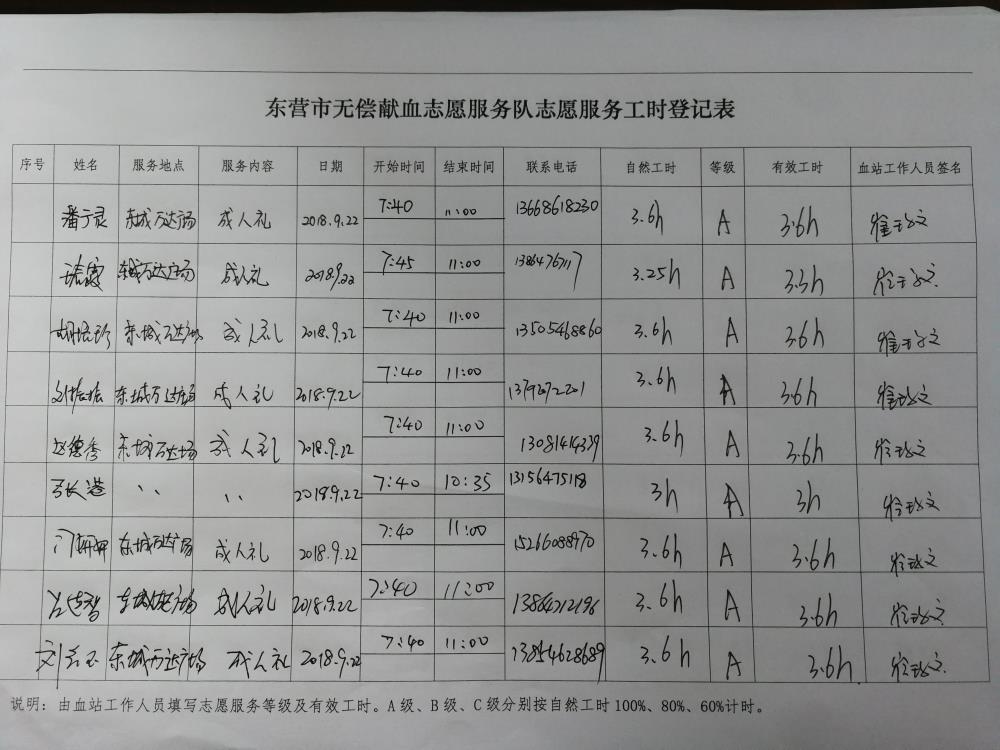 东营市无偿献血志愿服务队志愿服务工时登记表
序号 姓名 服务地点 服务内容 日期 开始时间 结束时间 联系电话 自然工时 等级 有效工时 血站工作人员签名
东城万达广场 成人礼 2018.9.22 7:40 11:00 13668618230 3.6h A 3.6h
东城万达广场 成人礼 2018.9.22 7:45 11:00 3.25h A 3.3h
东城万达广场 成人礼 2018.9.22 7:40 11:00 13505468860 3.6h A 3.6h
东城万达广场 成人礼 2018.9.22 7:40 11:00 13792072201 3.6h A 3.6h
赵德秀 东城万达广场 成人礼 2018.9.22 7:40 11:00 13081414339 3.6h A 3.6h
〃 〃 2018.9.22 7:40 10:35 13156475118 3h A 3h
东城万达广场 成人礼 2018.9.22 7:40 11:00 15266088970 3.6h A 3.6h
东城万达广场 成人礼 2018.9.22 7:40 11:00 3.6h A 3.6h
东城万达广场 成人礼 2018.9.22 7:40 11:00 13854628689 3.6h A 3.6h
说明：由血站工作人员填写志愿服务等级及有效工时。A级、B级、C级分别按自然工时100%、80%、60%计时。